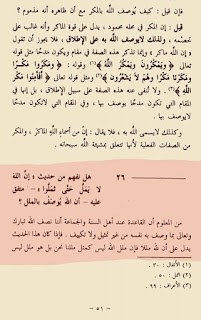 فإن قيل : كيف يُوصف الله بالمكر مع أن ظاهره أنه مذموم ؟
قيل : إن المكر في محله محمود ، يدل على قوة الماكر وأنه غالب على
خصمه ، ولذلك لا يوصف الله به على الإطلاق ، فلا يجوز أن تقول
« إن الله ماكر » وإنما تذكر هذه الصفة في مقام ويكون مدحًا مثل قوله
تعالى ﴿ ويمكرون ويمكر الله ﴾(١) وقوله : ﴿ ومكروا مكرًا
ومكرنا مكرًا وهم لا يشعرون ﴾(٢) ومثل قوله تعالى ﴿ أفأمنوا مكر
الله ﴾(٣) . ولا تنفى عنه هذه الصفة على سبيل الإطلاق ، بل إنها في
المقام التي تكون مدحًا يوصف بها ، وفي المقام التي لا تكون مدحًا
لا يوصف بها .
وكذلك لا يسمى الله به ، فلا يقال : إن من أسماء الله الماكر ، والمكر
من الصفات الفعلية لأنها تتعلق بمشيئة الله سبحانه .
٢٦ هل نفهم من حديث « إنَّ اللهَ
لا يَمَلُّ حَتَّى تَمَلُّوا » – متفق
عليه – أن الله يُوصَفُ بالملل ؟
من المعلوم أن القاعدة عند أهل السنة والجماعة أننا نصف الله تبارك
وتعالى بما وصف به نفسه من غير تمثيل ولا تكييف . فإذا كان هذا الحديث
يدل على أن لله مللًا فإن ملل الله ليس كمثل مللنا نحن بل هو ملل ليس
(١) الأنفال : ٣٠ .
(٢) النمل : ٥٠ .
(٣) الأعراف : ٩٩ .
– ٥١ –